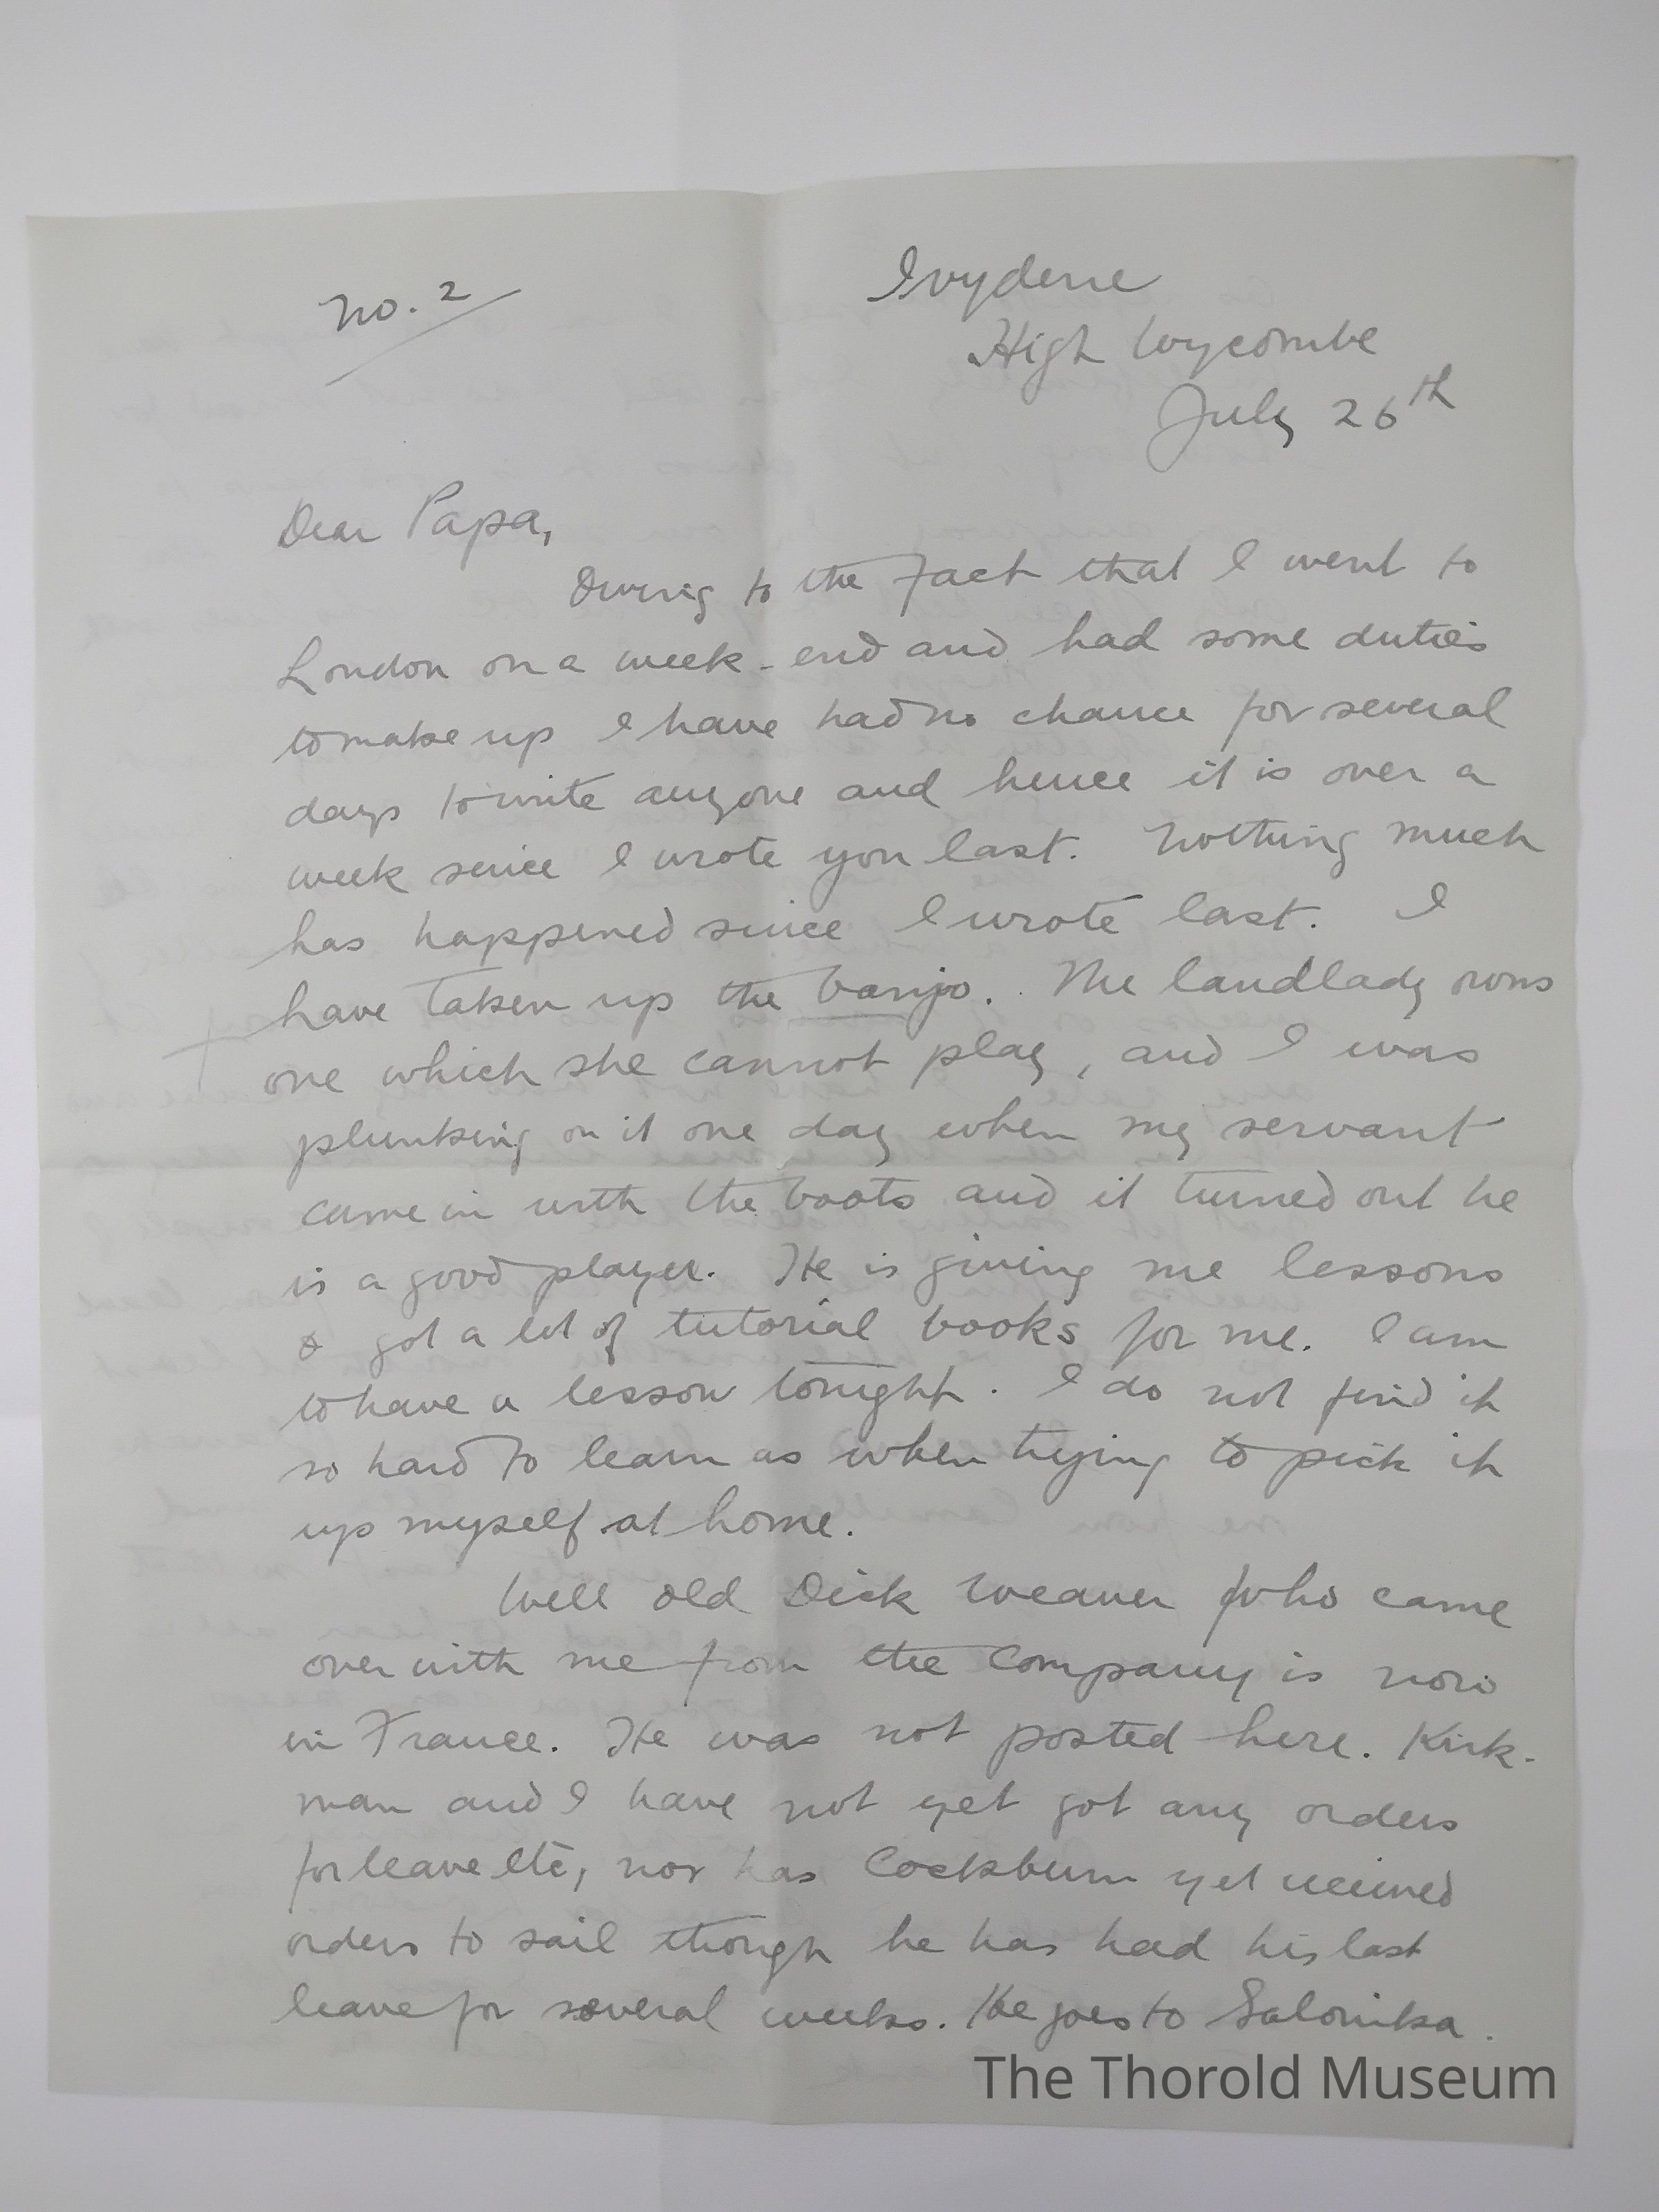 No. 2
Ivydene
High Wycombe
July 26th
Dear Papa,
Owing to the fact that I went to
London on a week-end and had some duties
to make up I have had no chance for several
days to write anyone and hence it is over a
week since I wrote you last. Nothing much
has happened since I wrote last. I
have taken up the banjo. The landlady owns
one which she cannot play, and I was
plunking on it one day when my servant
came in with the boots and it turned out he
is a good player. He is giving me lessons
& got a lot of tutorial books for me. I am
to have a lesson tonight. I do not find it
so hard to learn as when trying to pick it
up myself at home.
Well old Dick Weaver who came
over with me from the Company is now
in France. He was not posted here. Kirk-
man and I have not yet got any orders
for leave etc, nor has Cockburn yet received
orders to sail though he has had his last
leave for several weeks. He goes to Salonika.
The Thorold Museum